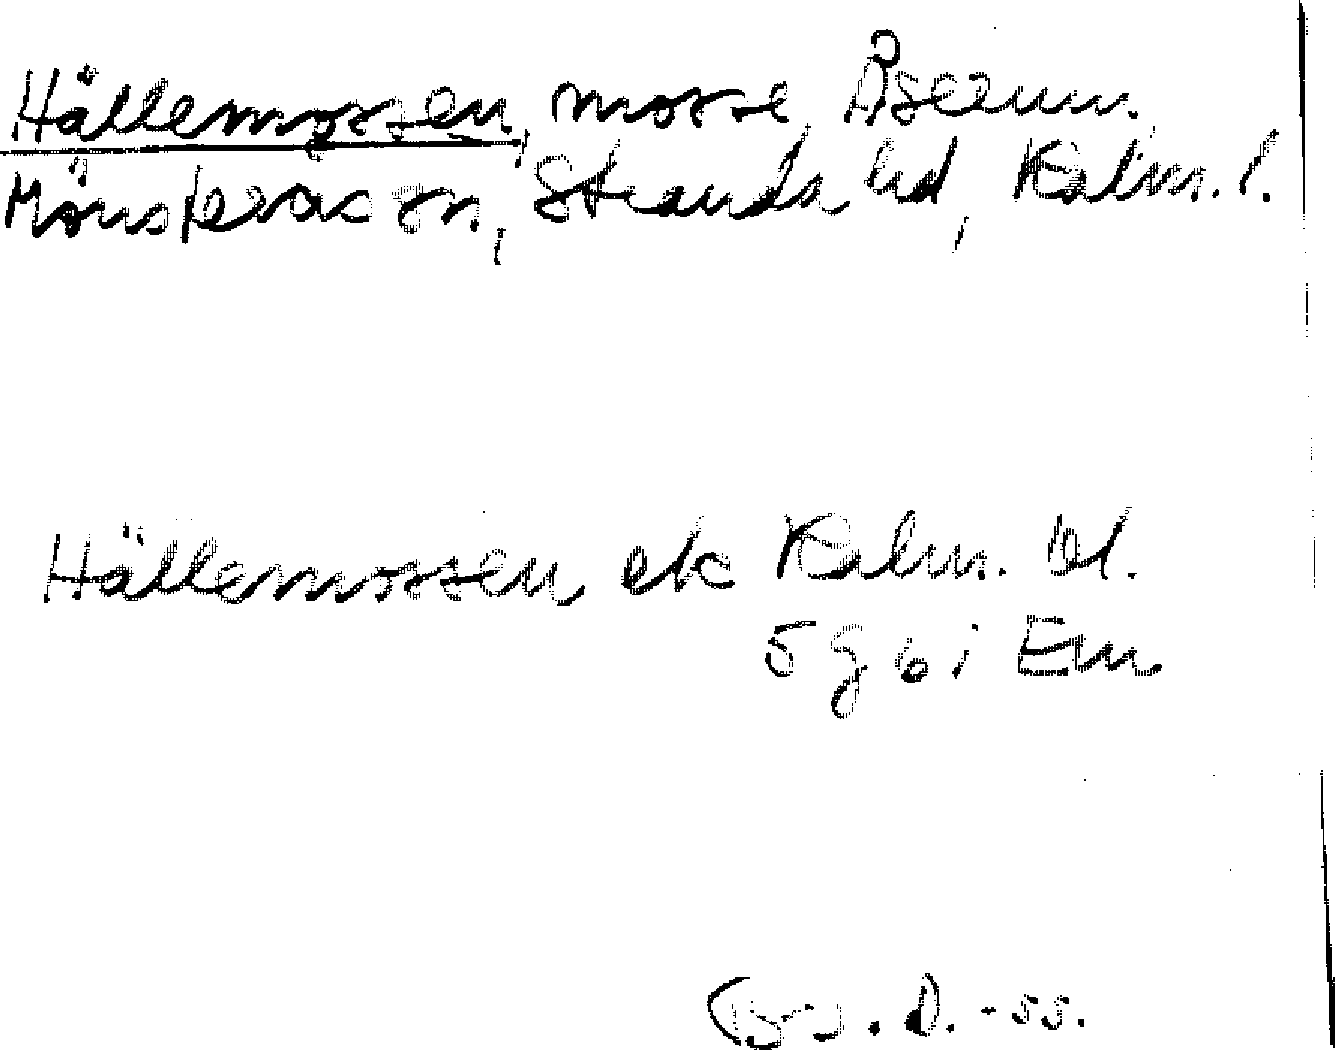 Hällemossen, mosse, Åserum.
Mönsterås sn, Stranda hd, Kalm. l.
Hällemossen ek Kalm. bl.
5 g 6 i Em
D. -55.